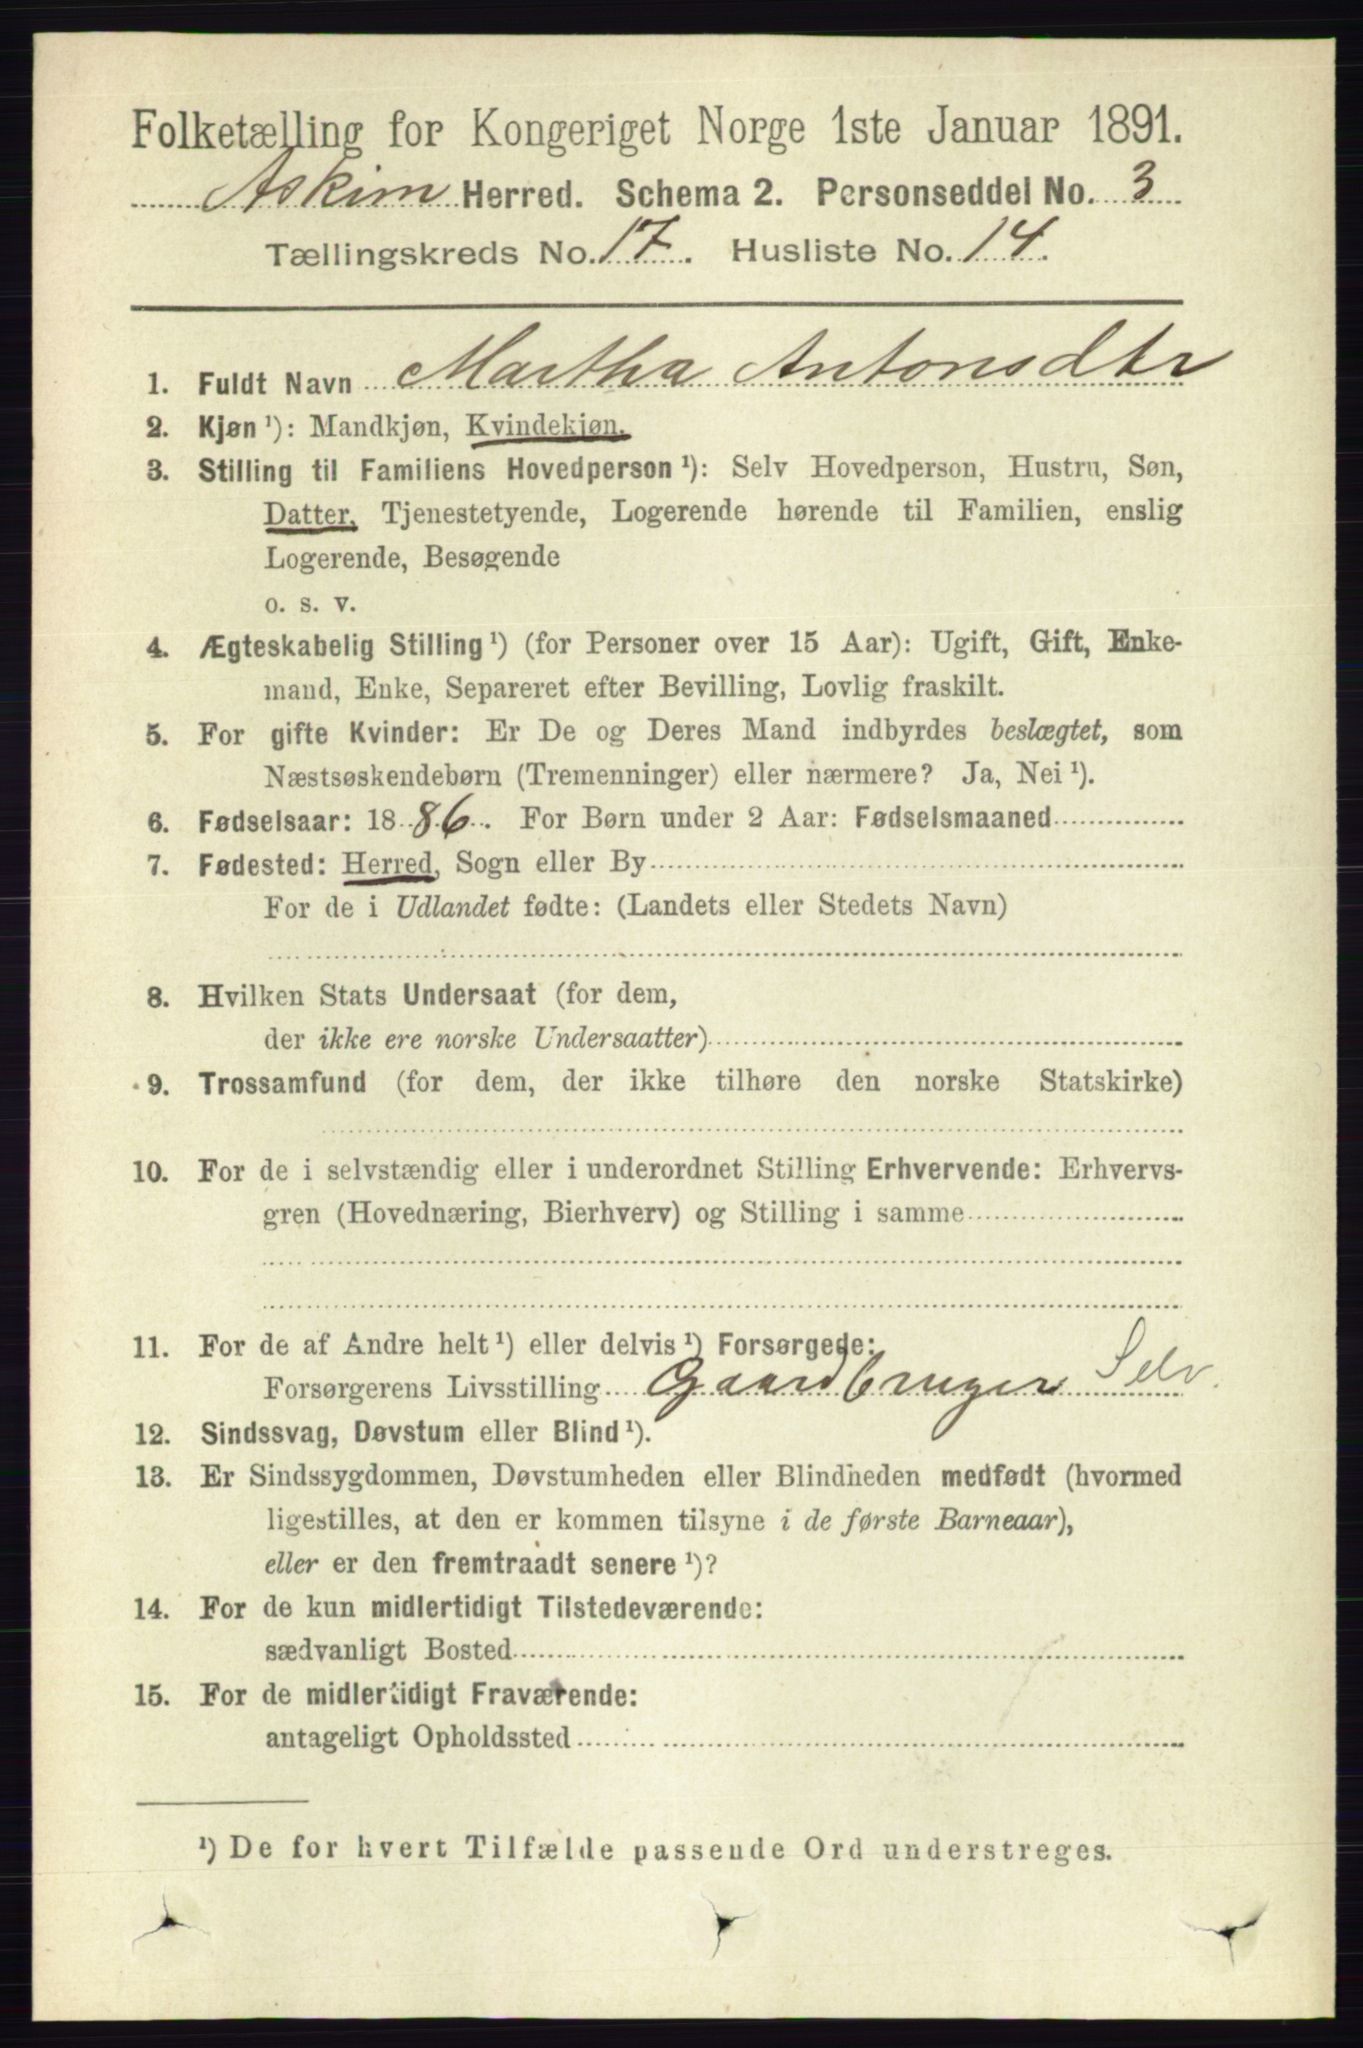 Folketælling for Kongeriget Norge 1ste Januar 1891.
Askim Herred. Schema 2. Personseddel No. 3
Tællingskreds No. 17. Husliste No. 14.
1. Fuldt Navn Martha Antonsdtr
2. Kjøn ¹): Mandkjøn, Kvindekjøn.
3. Stilling til Familiens Hovedperson ¹): Selv Hovedperson, Hustru, Søn,
Datter, Tjenestetyende, Logerende hørende til Familien, enslig
Logerende, Besøgende
o. s. v.
4. Ægteskabelig Stilling ¹) (for Personer over 15 Aar): Ugift, Gift, Enke-
mand, Enke, Separeret efter Bevilling, Lovlig fraskilt.
5. For gifte Kvinder: Er De og Deres Mand indbyrdes beslægtet, som
Næstsøskendebørn (Tremenninger) eller nærmere? Ja, Nei ¹).
6. Fødselsaar: 1886. For Børn under 2 Aar: Fødselsmaaned
7. Fødested: Herred, Sogn eller By
For de i Udlandet fødte: (Landets eller Stedets Navn)
8. Hvilken Stats Undersaat (for dem,
der ikke ere norske Undersaatter)
9. Trossamfund (for dem, der ikke tilhøre den norske Statskirke)
10. For de i selvstændig eller i underordnet Stilling Erhvervende: Erhvervs-
gren (Hovednæring, Bierhverv) og Stilling i samme
11. For de af Andre helt ¹) eller delvis ¹) Forsørgede:
Forsørgerens Livsstilling Gaardbruger Selv.
12. Sindssvag, Døvstum eller Blind ¹).
13. Er Sindssygdommen, Døvstumheden eller Blindheden medfødt (hvormed
ligestilles, at den er kommen tilsyne i de første Barneaar),
eller er den fremtraadt senere ¹)?
14. For de kun midlertidigt Tilstedeværende:
sædvanligt Bosted
15. For de midlertidigt Fraværende:
antageligt Opholdssted
¹) De for hvert Tilfælde passende Ord understreges.